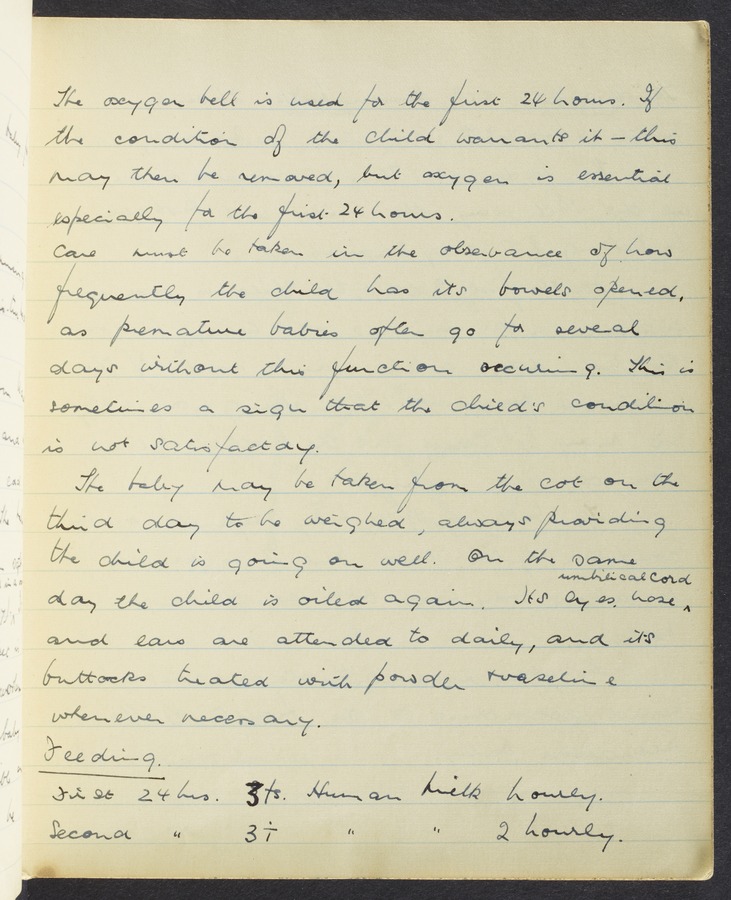 The oxygen bell is used for the first 24 hours. If
the condition of the child warrants it – this
may then be removed, but oxygen is essential
especially for the first 24 hours.
Care must be taken in the observance of how
frequently the child has its bowels opened,
as premature babies often go for several
days without this function occuring. This is
sometimes a sign that the child's condition
is not satisfactory.
The baby may be taken from the cot on the
third day to be weighed, always providing
the child is going on well. On the same
umbilical cord
day the child is oiled again. Its eyes, nose, ^
and ears are attended to daily, and its
buttocks treated with powder + vaseline
whenever necessary.
Feeding.
First 24 hrs. ʒfs. Human Milk hourly.
Second " ʒi " " 2 hourly.